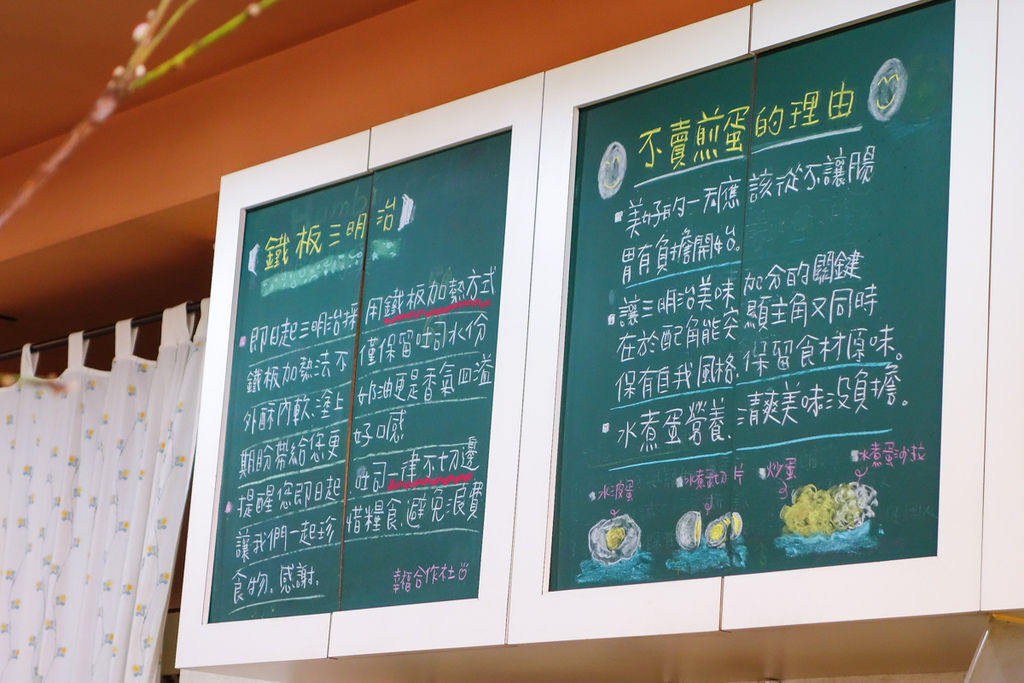 鐵板三明治
即日起三明治採用鐵板加熱方式
鐵板加熱法不僅保留吐司水份
外酥內軟.塗上奶油更是香氣四溢
期盼帶給您更好口感
提醒您即日起.吐司一律不切邊
讓我們一起珍惜糧食.避免浪費
食物。感謝。
幸福合作社
不賣煎蛋的理由
美好的一天應該從不讓腸
胃有負擔開始。
讓三明治美味加分的關鍵
在於配角能突顯主角又同時
保有自我風格.保留食材原味。
水煮蛋營養.清爽美味沒負擔。
水波蛋
水煮蛋切片
炒蛋
水煮蛋沙拉